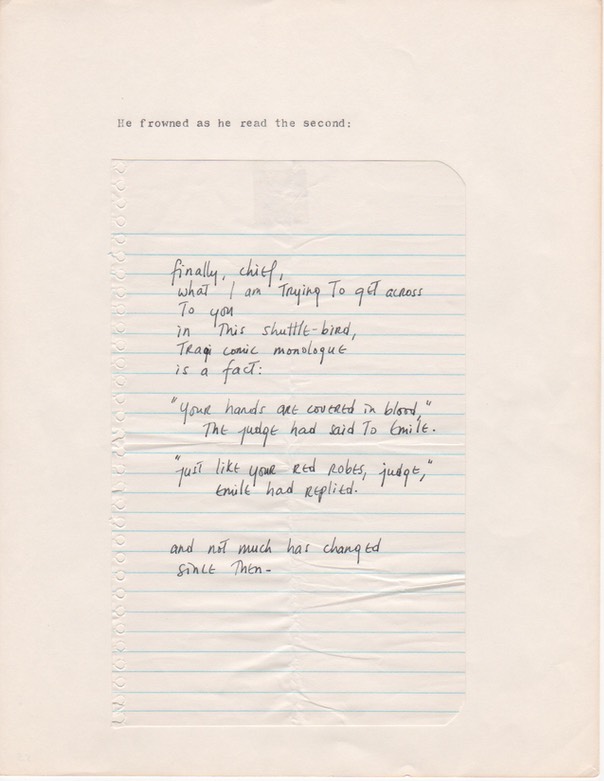 He frowned as he read the second:
finally, chief,
what I am trying to get across
to you
in this shuttle-bird,
tragi comic monologue
is a fact:
"your hands are covered in blood,"
the judge had said to Emile.
"just like your red robes, judge,"
Emile had replied.
and not much has changed
since then-